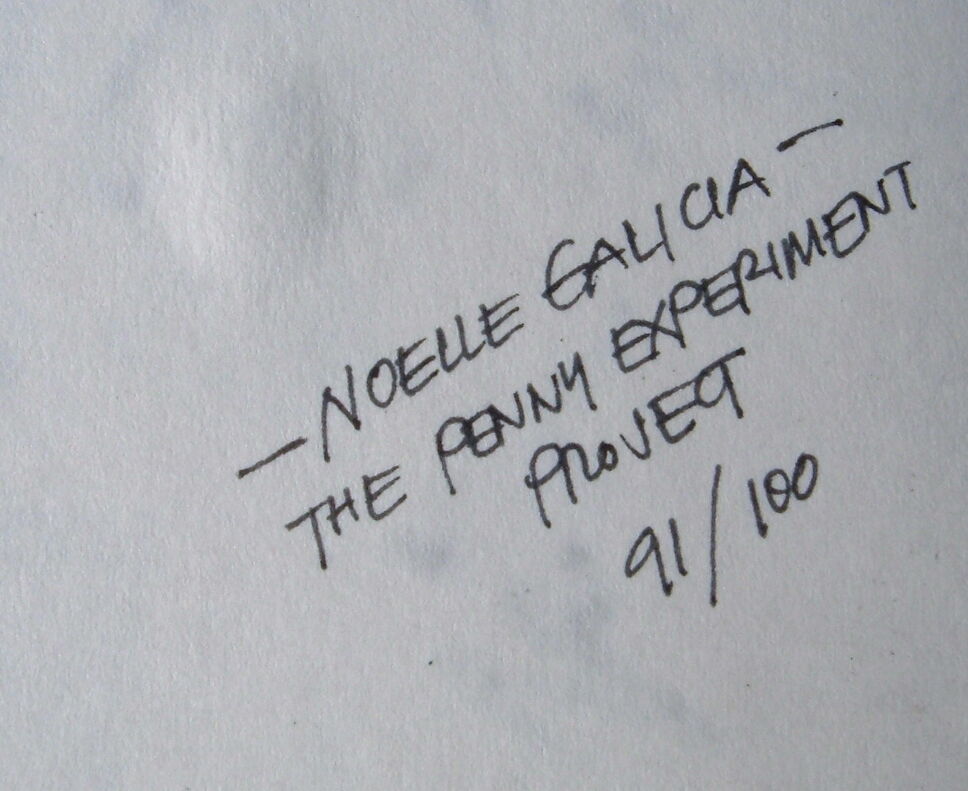 — NOELLE GALICIA —
THE PENNY EXPERIMENT
PROJECT
91/100